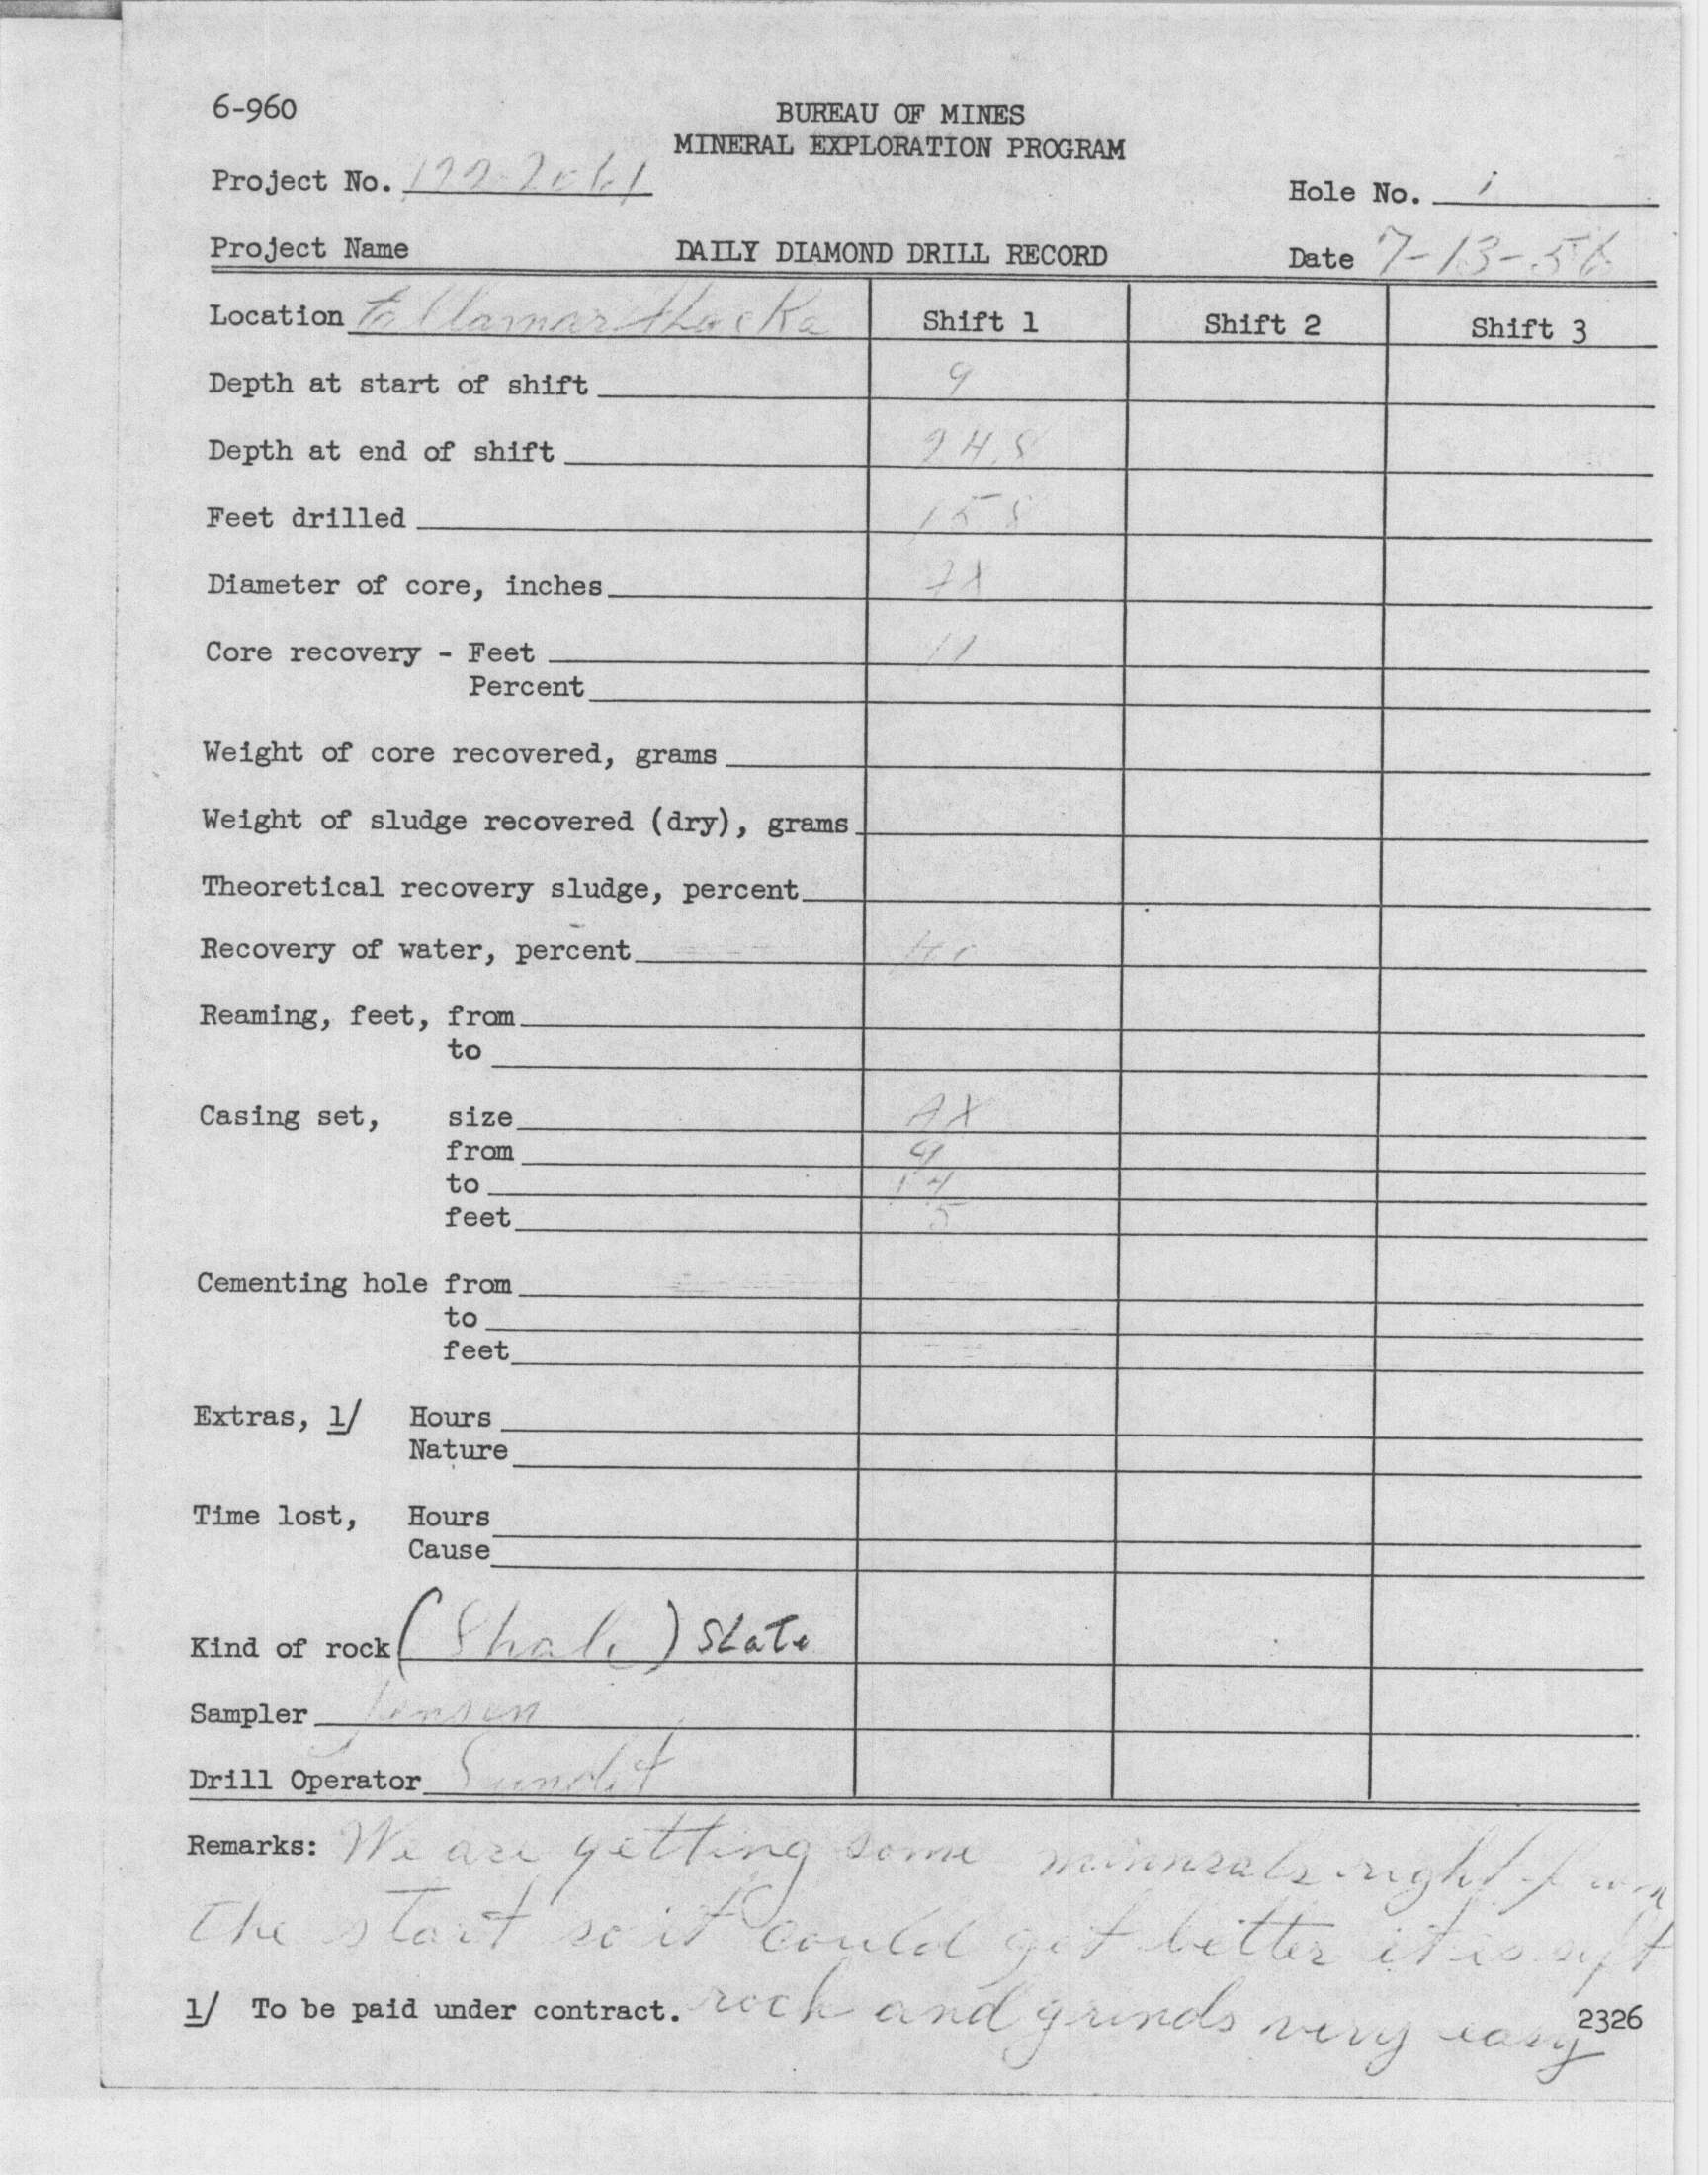 6-960
BUREAU OF MINES
MINERAL EXPLORATION PROGRAM
Project No.
Hole No. 1
Project Name DAILY DIAMOND DRILL RECORD Date 7-13-56
Location Shift 1 Shift 2 Shift 3
Depth at start of shift 9
Depth at end of shift 24.8
Feet drilled 158
Diameter of core, inches
Core recovery - Feet 11
Percent
Weight of core recovered, grams
Weight of sludge recovered (dry), grams
Theoretical recovery sludge, percent
Recovery of water, percent
Reaming, feet, from
to
Casing set, size AX
from 9
to 14
feet 5
Cementing hole from
to
feet
Extras, 1/ Hours
Nature
Time lost, Hours
Cause
Kind of rock (Shale) Slate
Sampler Jensen
Drill Operator
Remarks: We are getting some minnrals right from
the start so it could get better it is soft
rock and grinds very easy
1/ To be paid under contract.
2326